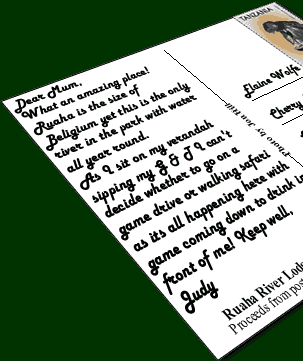 Dear Mum,
What an amazing place!
Ruaha is the size of
Beligium yet this is the only
river in the park with water
all year round.
As I sit on my verandah
sipping my G & T I can't
decide whether to go on a
game drive or walking safari
as it's all happening here with
game coming down to drink in
front of me! Keep well,
Judy
TANZANIA
Elaine Wolfe
Cherry
Photo by
Ruaha River Lod
Proceeds from post